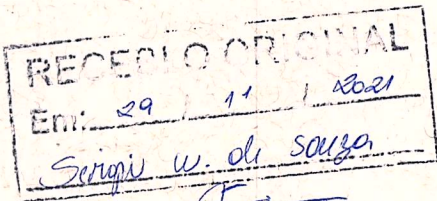 RECEBI O ORIGINAL
Em: 29 / 11 / 2021
Sergio W. de Souza